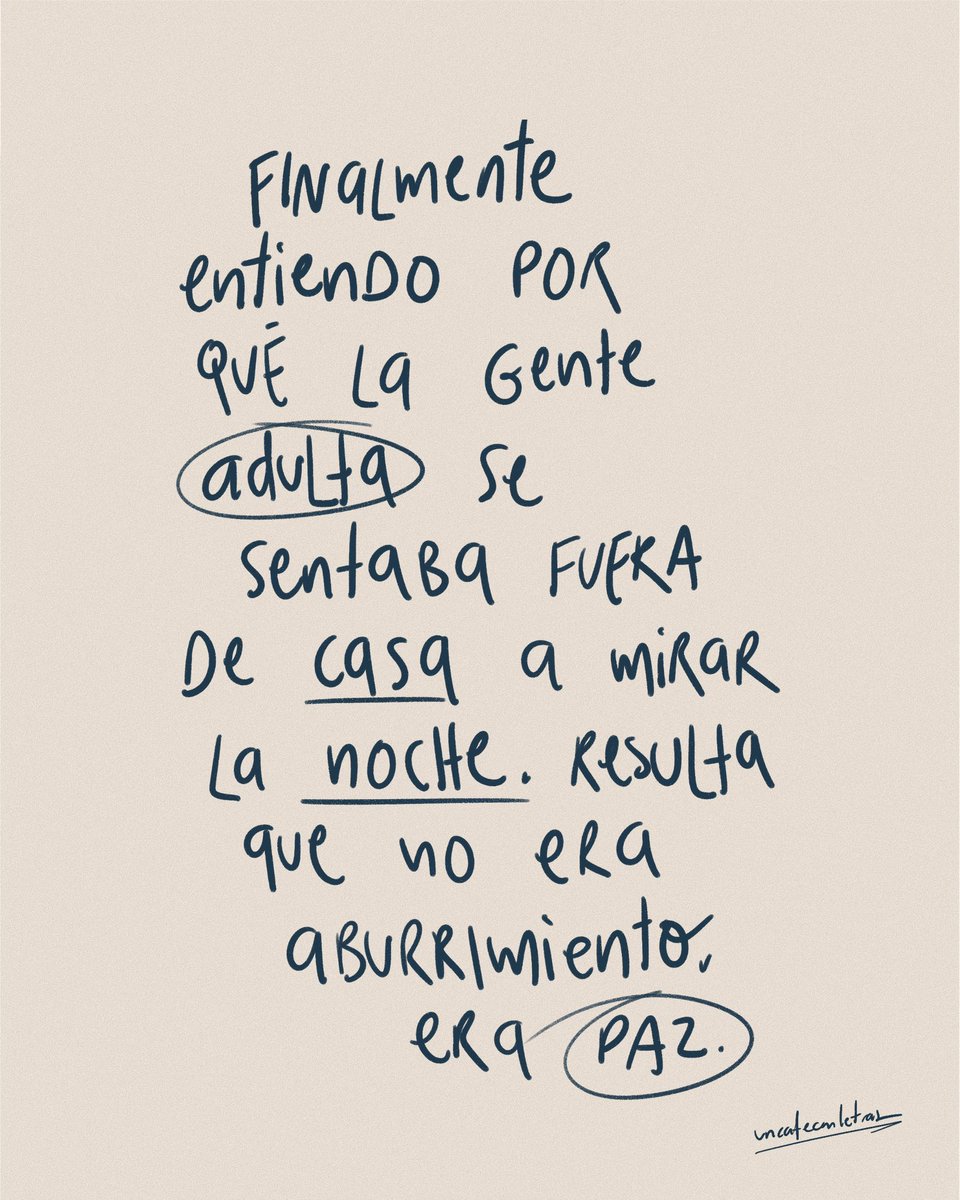 Finalmente
entiendo por
qué la gente
adulta se
sentaba fuera
de casa a mirar
la noche. Resulta
que no era
aburrimiento,
era paz.
uncafeconletras